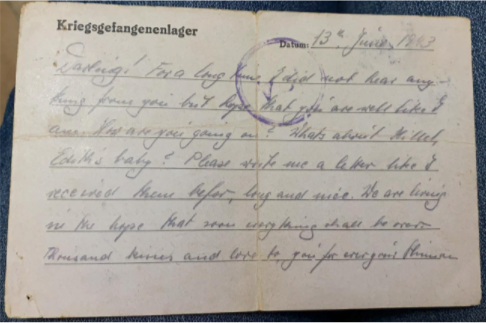 Kriegsgefangenenlager
Datum: 13th June 1943
Darling! For a long time, I did not hear any-
thing from you but hope that you are well like I
am. How are you going on? Whats about
Edith's baby? Please write me a letter like I
received them befor, long and nice. We are living
in the hope that soon everything shall be over
Thousand kisses and love to you for ever yours